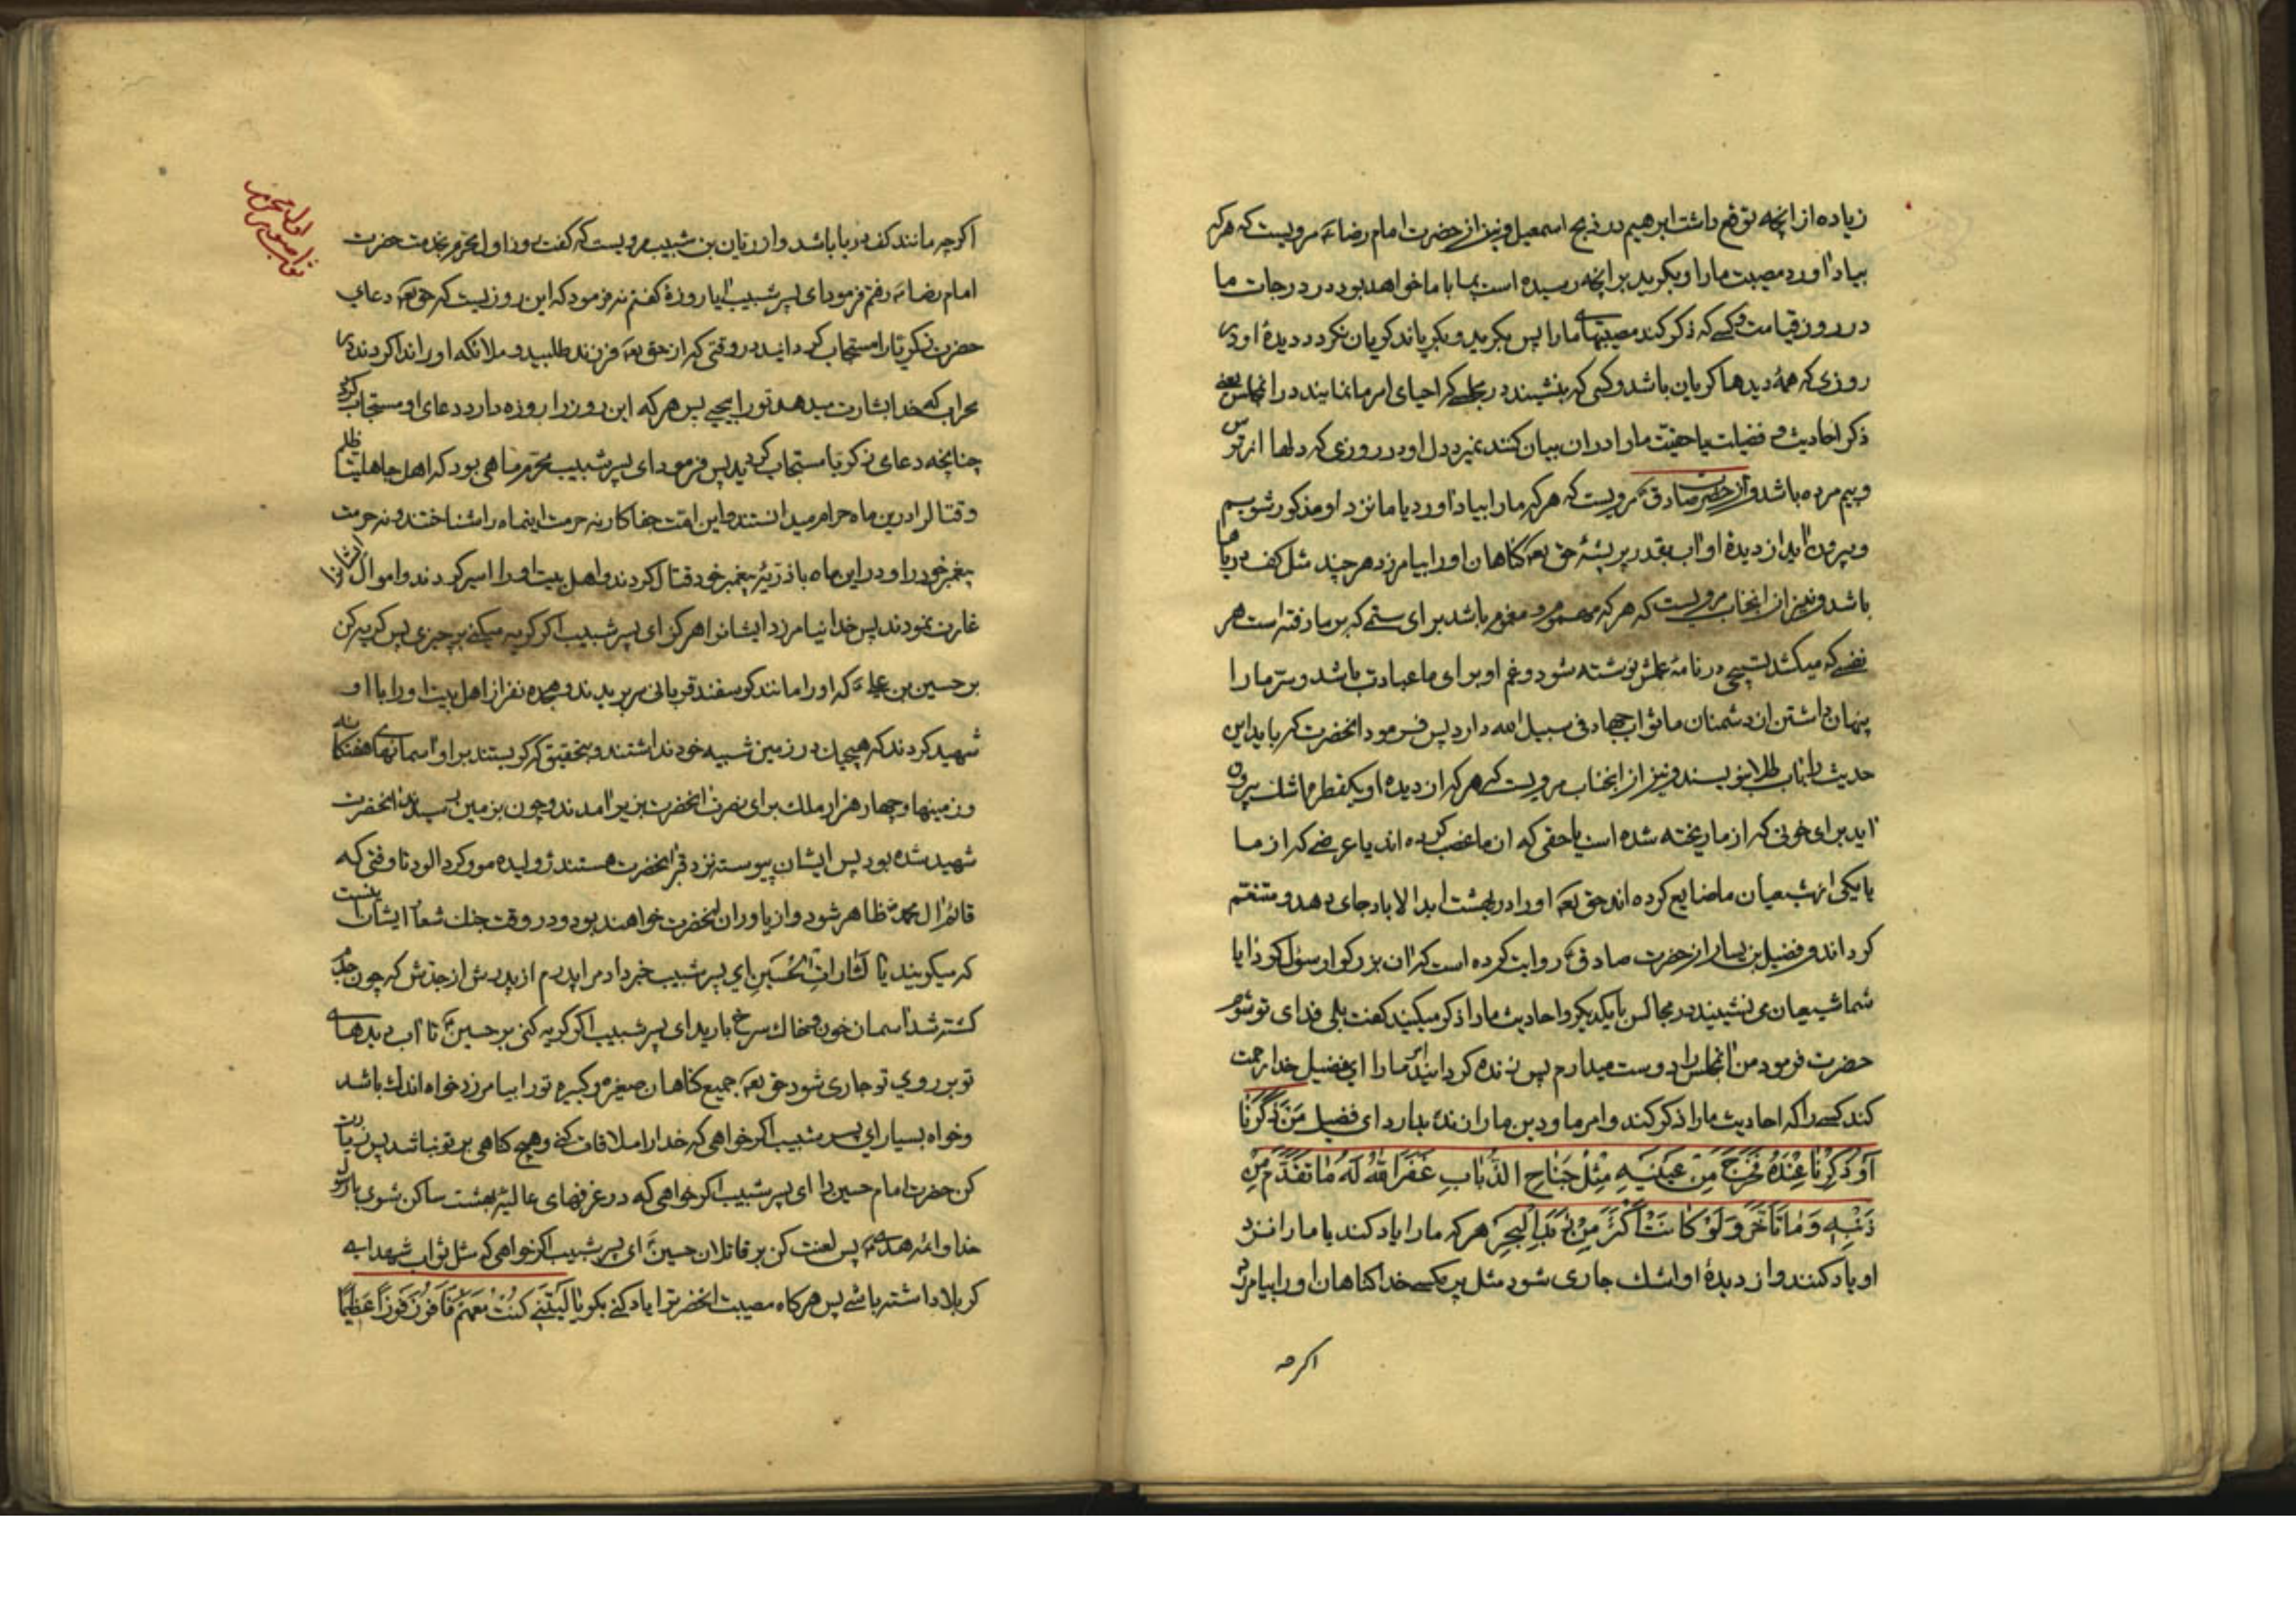 زیاده از انچه توقع داشت ابرهیم در ذبح اسمعیل و نیز از حضرت امام رضاء مرویست که هر که
بیاد اورد مصیبت مارا و بکرید بر انچه رسیده است بما با ما خواهد بود در درجات ما
در روز قیامت و کسے که ذکر کند مصیبتهاے مارا پس بکرید و بکریاند کریان نکردد دیدۀ او در
روزی که همۀ دیدها کریان باشد و کسی که بنشیند در مجلسے که احیای امر ما نمایند در انمجلس یعنے
ذکر احادیث و فضیلت یا حقیّت مارا دران بیان کنند نمیرد دل او در روزی که دلها از ترس
و بیم مرده باشد و از حضرت صادق ع مرویست که هر که مارا بیاد اورد یا ما نزد او مذکور شویم
و بیرون اید از دیدۀ او اب بقدر پر پشۀ حق تعه کناهان اورا بیامرزد هر چند مثل کف دریاها
باشد و نیز از انجناب مرویست که هر که مهموم و مغموم باشد برای ستمے که بر ما رفته است هر
نفسے که میکشد تسبیحی در نامۀ عملش نوشته شود و غم او برای ما عبادت باشد و ستر مارا
پنهان داشتن از دشمنان ما ثواب جهاد فی سبیل الله دارد پس فرمود انحضرت که باید این
حدیث را باب طلا بنویسند و نیز از انجناب مرویست که هر که از دیده او یکقطره اشک بیرون
اید برای خونی که از ما ریخته شده است یا حقی که از ما غصب کرده اند یا عرضے که از ما
یا یکی از شیعیان ما ضایع کرده اند حق تعه اورا در بهشت ابد الاباد جای دهد و متنعّم
کرداند و فضیل بن یسار از حضرت صادق ع روایت کرده است که ان بزرکوار از سؤال کرد ایا
شما شیعیان می نشینید در مجالس با یکدیکر و احادیث مارا ذکر میکنید کفت بلی فدای تو شوم
حضرت فرمود من انمجلس را دوست میدارم پس زنده کردانید امر مارا ای فضیل خدا رحمت
کند کسے را که احادیث مارا ذکر کند و امر ما و دین مارا زنده بدارد ای فضیل مَنْ ذَکَرَنَا
اَوْ ذُکِرْنَا عِنْدَهُ فَخَرَجَ مِنْ عَیْنَیْهِ مِثْلُ جَنَاحِ الذُّبَابِ غَفَرَ اللّٰهُ لَهُ مَا تَقَدَّمَ مِنْ
ذَنْبِهِ وَ مَا تَاَخَّرَ وَ لَوْ کَانَتْ اَکْثَرَ مِنْ زَبَدِ الْبَحْرِ هر که مارا یاد کند یا مارا نزد
او یاد کنند و از دیدۀ او اشک جاری شود مثل پر مکسے خدا کناهان اورا بیامرزد
اکرچه
اول محرم
اکرچه مانند کف دریا باشد و از ریان بن شبیب مرویست که کفت روز اول محرم بخدمت حضرت
امام رضاء رفتم فرمود ای پسر شبیب ایا روزۀ کفتم نه فرمود که این روزیست که حق تعه دعای
حضرت زکریا را مستجاب کردانید در وقتی که از حق تعه فرزند طلبید و ملائکه اورا ندا کردند در
محراب که خدا بشارت میدهد تورا بیحیے پس هر که این روز را روزه دارد دعای او مستجاب کردد
چنانچه دعای زکریا مستجاب کردید پس فرمود ای پسر شبیب محرم ماهی بود که اهل جاهلیت ظلم
و قتال را درین ماه حرام میدانستند و این امّت جفا کار نه حرمت اینماه را شناختند و نه حرمت
پیغمبر خود را و در این ماه با ذرّیۀ پیغمبر خود قتال کردند و اهل بیت اورا اسیر کردند و اموال ایشانرا
غارت نمودند پس خدا نیامرزد ایشانرا هرکز ای پسر شبیب اکر کریه میکنے بر چیزی پس کریه کن
بر حسین بن علے ع که اورا مانند کوسفند قربانی سر بریدند و هیجده نفر از اهل بیت اورا با او
شهید کردند که هیچیک در زمین شبیه خود نداشتند و بتحقیق که کریستند بر او اسمانهاے هفتکانه
و زمینها و چهار هزار ملک برای نصرت انحضرت بزیر امدند و چون بزمین رسیدند انحضرت
شهید شده بود پس ایشان پیوسته نزد قبر انحضرت هستند ژولیده مو و کرد الود تا وقتی که
قائم ال محمد ظاهر شود و از یاوران انحضرت خواهند بود و در وقت جنک شعار ایشان اینست
که میکویند یَا لَثَارَاتِ الْحُسَیْنِ ای پسر شبیب خبر داد مرا پدرم از پدرش از جدّش که چون جدم
کشته شد اسمان خون و خاک سرخ بارید ای پسر شبیب اکر کریه کنی بر حسین ع تا اب دیدهاے
تو بر روی تو جاری شود حق تعه جمیع کناهان صغیره و کبیره تورا بیامرزد خواه اندک باشد
و خواه بسیار ای پسر شبیب اکر خواهی که خدا را ملاقات کنے و هیچ کناهی بر تو نباشد پس زیارت
کن حضرت امام حسین را ای پسر شبیب اکر خواهی که در غرفهای عالیۀ بهشت ساکن شوی با رسول
خدا و ائمه هدے ع پس لعنت کن بر قاتلان حسین ع ای پسر شبیب اکر خواهی که مثل ثواب شهدای
کربلا داشته باشے پس هر کاه مصیبت انحضرترا یاد کنے بکو یَا لَیْتَنِے کُنْتُ مَعَهُمْ فَاَفُوزَ فَوْزًا عَظِیْمًا